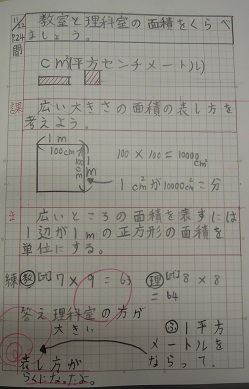 11/22
P.24
教室と理科室の面積をくらべ
ましょう。
問
cm²(平方センチメートル)
課 広い大きさの面積の表し方を
考えよう。
1m
100cm
1m
100cm
100×100=10000cm²
1cm²が10000cm²=分
広いところの面積を表すには
1辺が1mの正方形の面積を
単位にする。
練 教 7×9=63
理 8×8
=64
答え理科室の方が
大きい
1平方
メートルを
ならって、
表し方が
らくになったよ。